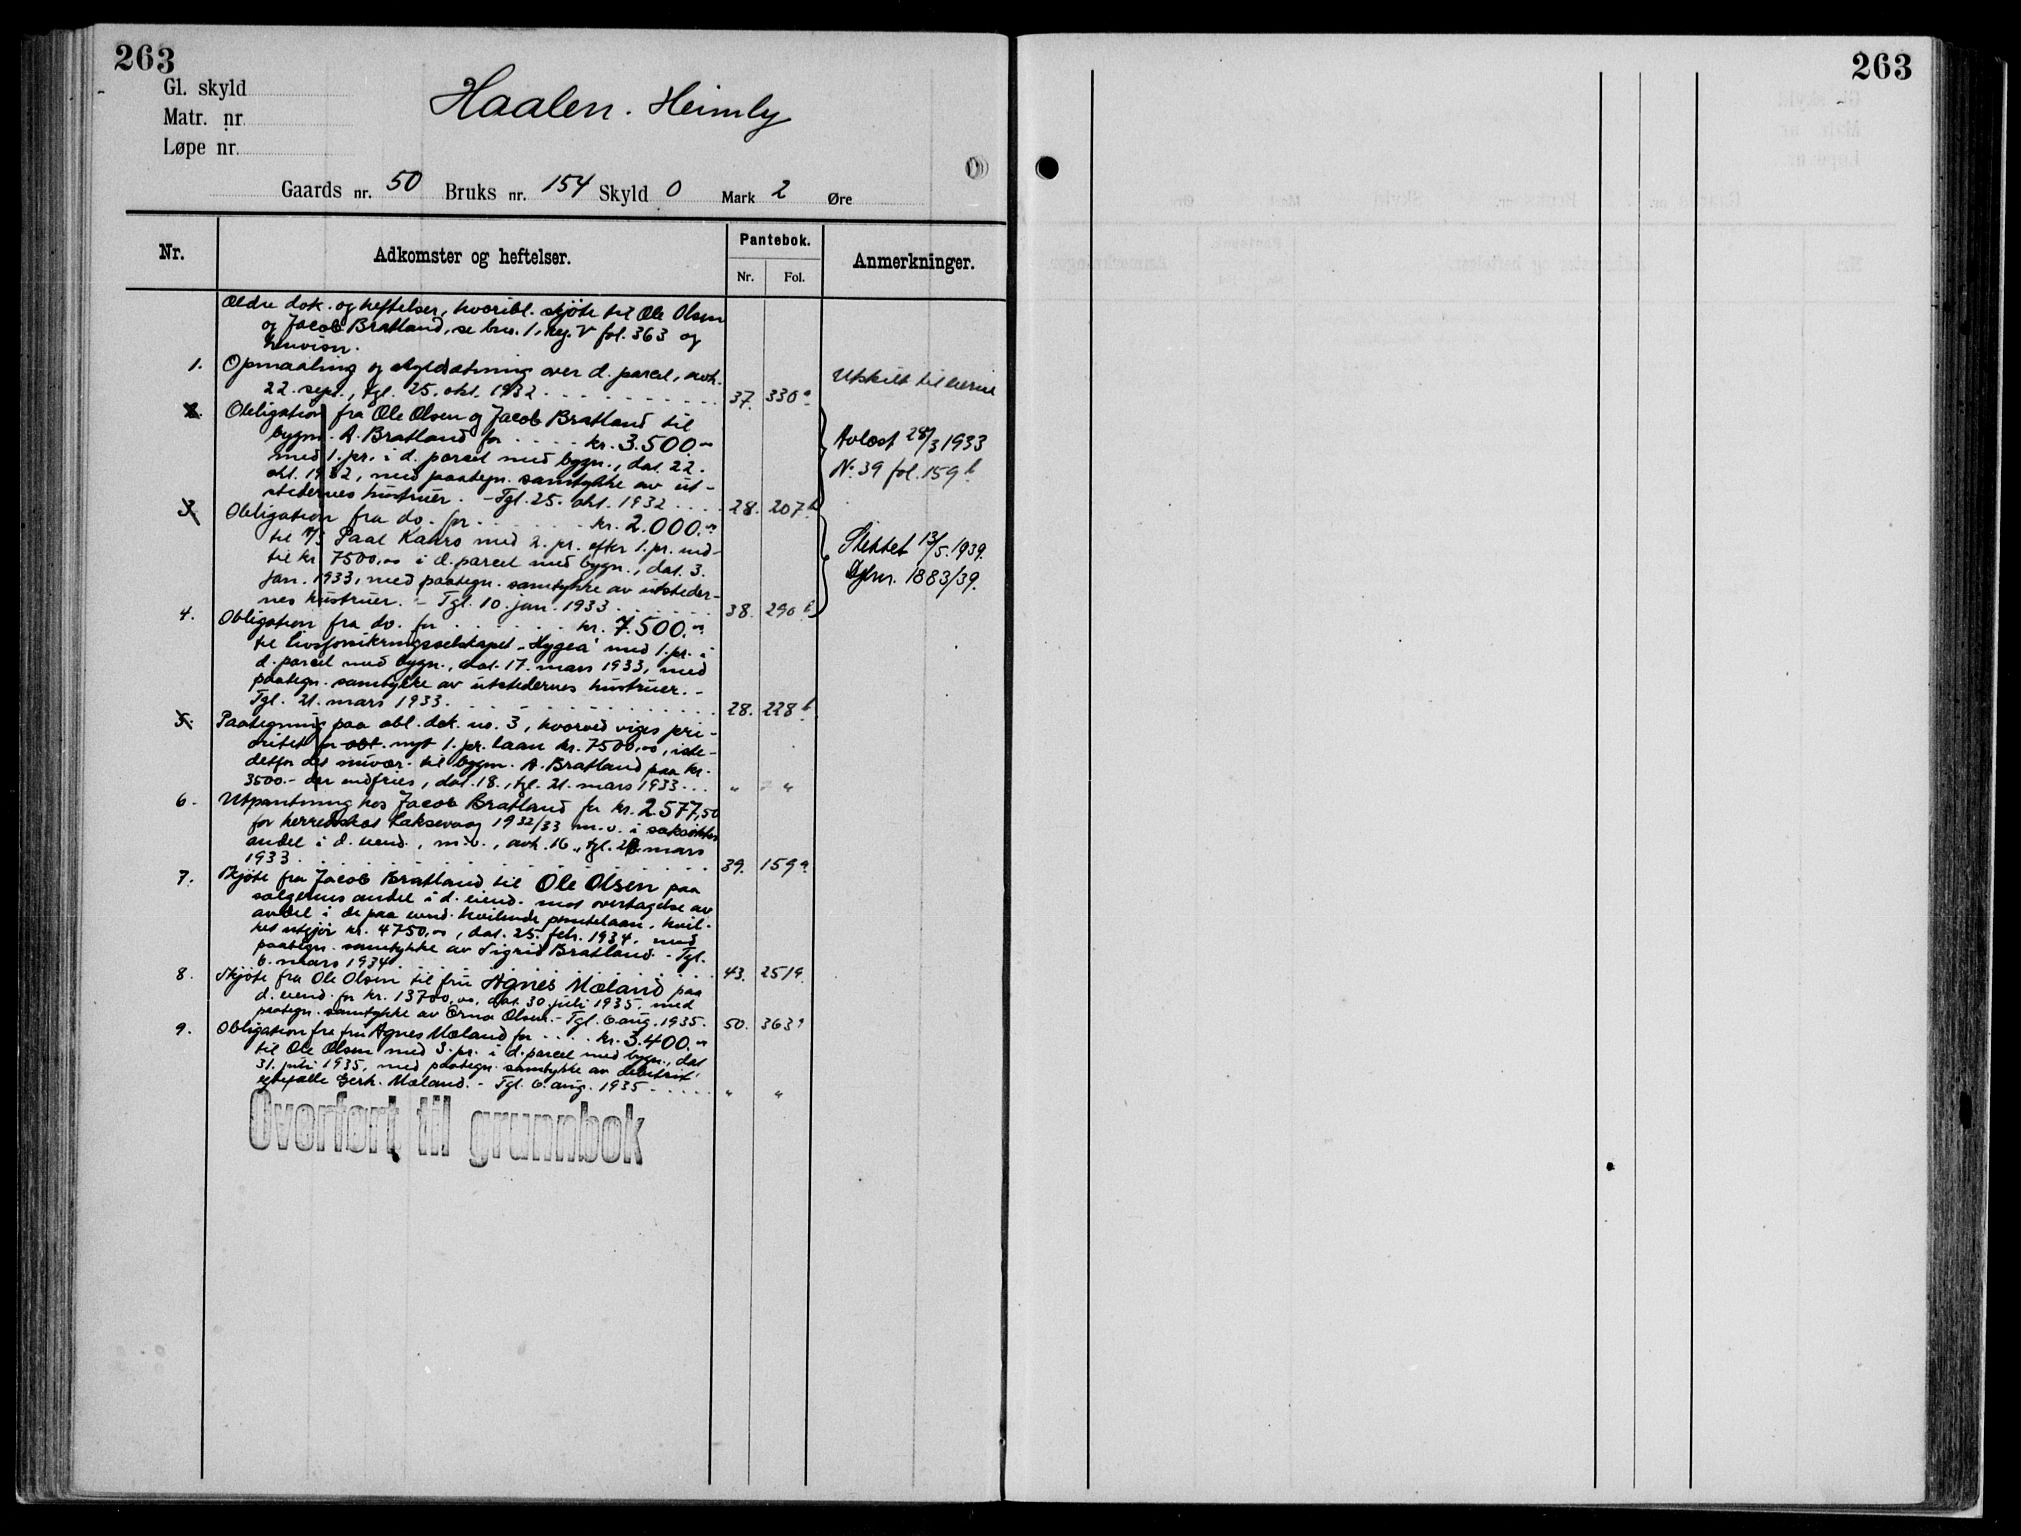 263
263
Gl. skyld
Matr. nr.
Løpe nr.
Haalen. Heimly
Gaards nr. 50 Bruks nr. 154 Skyld 0 Mark 2 Øre
Nr. Adkomster og heftelser. Pantebok. Anmerkninger.
Nr. Fol.
Ældre dok. og heftelser, hvoribl. skjøte til Ole Olsen
og Jacob Bratland, se bnr. 1, reg. V fol. 363 og
henvisn.
1. Opmaaling og skyldsætning over d. parcel, avh.
22. sept., tgl. 25. okt. 1932 37. 330a Utskilt til eierne
2. Obligation fra Ole Olsen og Jacob Bratland til
bygm. A. Bratland for kr. 3.500.-
med 1. pr. i d. parcel med bygn., dat. 22.
okt. 1932, med paategn. samtykke av ut-
stedernes hustruer. - Tgl. 25. okt. 1932 28. 207b
Avløst 28/3 1933
N. 39 fol. 159b
3. Obligation fra do. for kr. 2.000.-
til Paal Kaars med 2. pr. efter 1. pr. ind-
til kr. 7500,00 i d. parcel med bygn., dat. 3.
jan. 1933, med paategn. samtykke av utsteder-
nes hustruer. - Tgl. 10. jan. 1933 38. 290b
Slettet 13/5.1939.
Dgbnr. 1883/39.
4. Obligation fra do. for kr. 7.500.-
til livsforsikringsselskapet "Hygea" med 1. pr. i
d. parcel med bygn., dat. 17. mars 1933, med
paategn. samtykke av utstedernes hustruer. -
Tgl. 21. mars 1933. 28. 228b
5. Paategning paa obl. dok. no. 3, hvorved viges pri-
oritet for obl. nyt 1. pr. laan kr. 7500,00, iste-
detfor det nuvær. til bygm. A. Bratland paa kr.
3500.- der indfries, dat. 18., tgl. 21. mars 1933 " "
6. Utpantning hos Jacob Bratland for kr. 2577,50
for herredsskat Laksevaag 1932/33 m.v. i saksøktes
andel i d. eiend., m.v., avh. 16., tgl. mars
1933. 39. 159a
7. Skjøte fra Jacob Bratland til Ole Olsen paa
sælgerens andel i d. eiend. mot overtagelse av
andel i de paa eiend. hvilende pantelaan, hvil-
ket utgjør kr. 4750,00, dat. 25. febr. 1934, med
paategn. samtykke av Sigrid Bratland. - Tgl.
6. mars 1934 43. 251a
8. Skjøte fra Ole Olsen til fru Agnes Mæland paa
d. eiend. for kr. 13700,00, dat. 30. juli 1935, med
paategn. samtykke av Erna Olsen. - Tgl. 6. aug. 1935. 50. 363a
9. Obligation fra fru Agnes Mæland for kr. 3.400.-
til Ole Olsen med 3. pr. i d. parcel med bygn., dat.
31. juli 1935, med paategn. samtykke av debitrix'
egtefælle Gerh. Mæland. - Tgl. 6. aug. 1935 " "
Overført til grunnbok